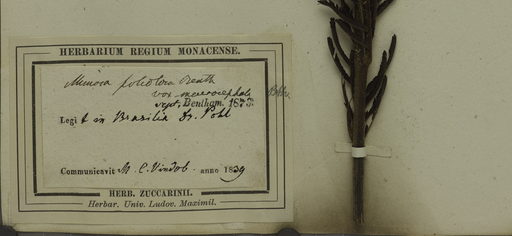 HERBARIUM REGIUM MONACENSE.
Mimosa foliolosa Benth
var macrocephala
sept. Bentham. 1873.
Legit in Brasilia Dr. Pohl
Communicavit M. C. Vindob. anno 1839
HERB. ZUCCARINII.
Herbar. Univ. Ludov. Maximil.